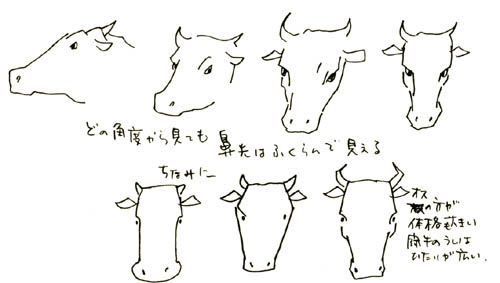 どの角度から見ても鼻先はふくらんで見える
ちなみに
オス
の方が
体格も大きい
闘牛のうしは
ひたいが広い